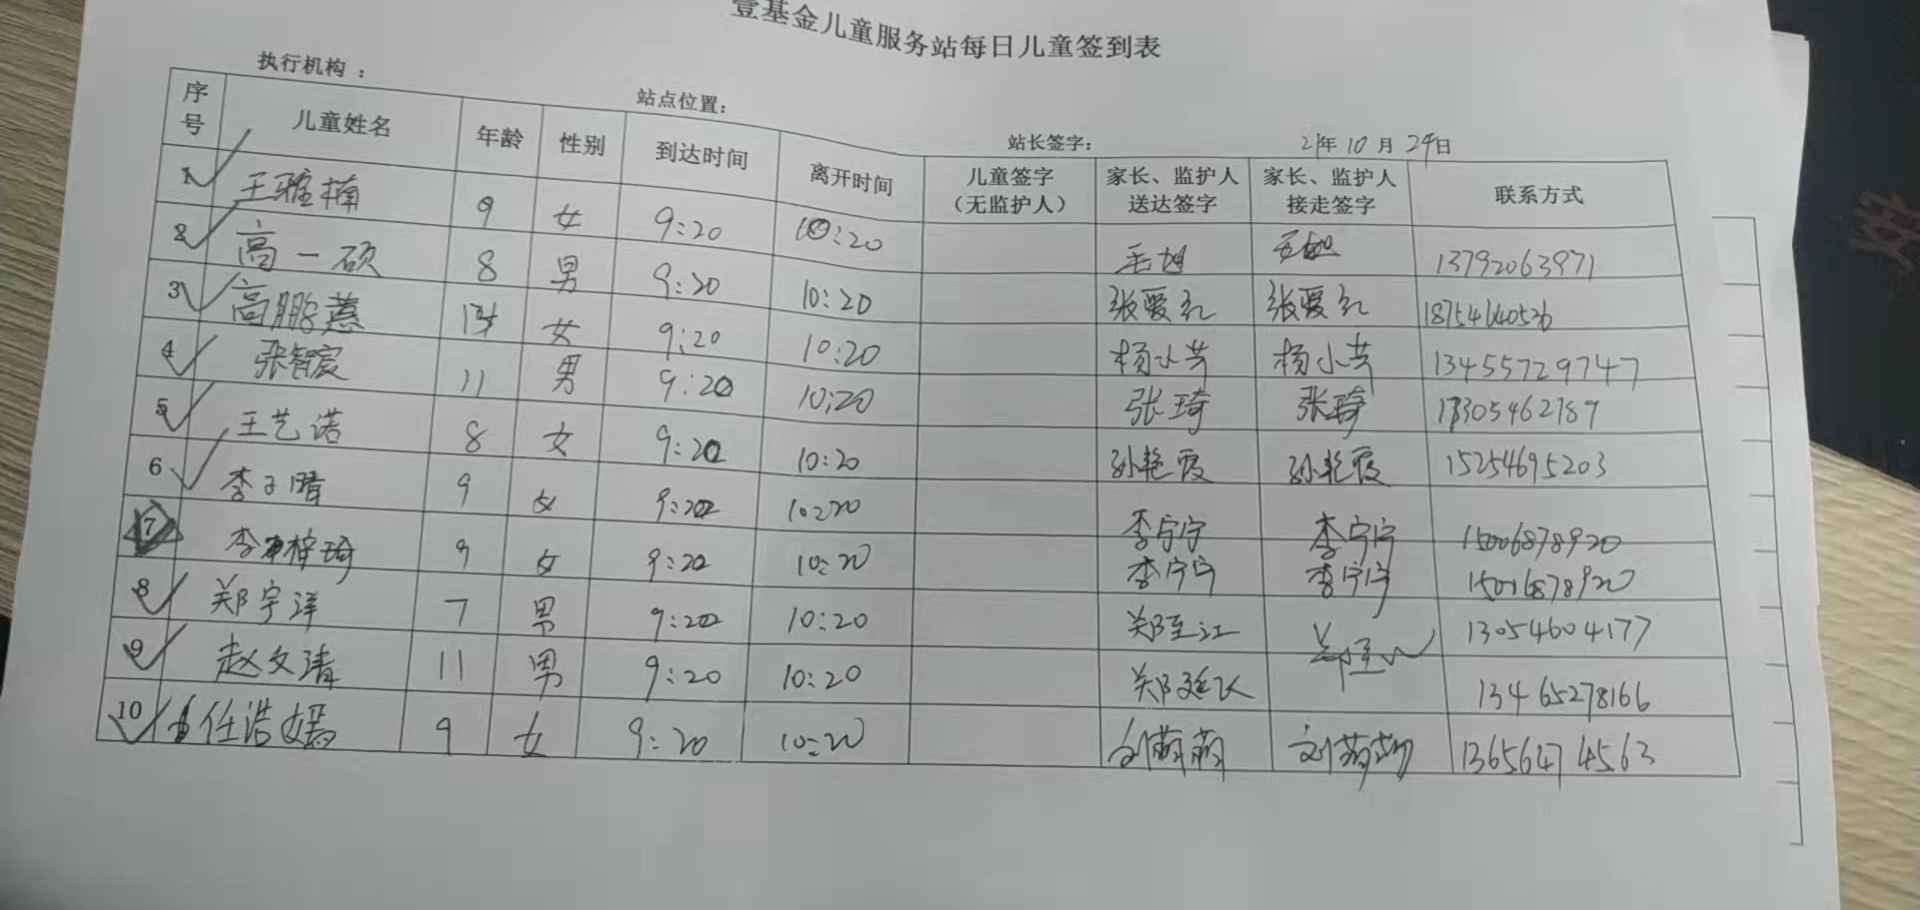 壹基金儿童服务站每日儿童签到表
执行机构： 站点位置： 站长签字： 21年10月29日
序号 儿童姓名 年龄 性别 到达时间 离开时间 儿童签字（无监护人） 家长、监护人送达签字 家长、监护人接走签字 联系方式
1 王雅楠 9 女 9:20 10:20 13792063971
2 高一硕 8 男 9:20 10:20 张爱礼 张爱礼 18754640526
3 高鹏慧 女 9:20 10:20 杨小芳 杨小芳 13455729747
4 张智宸 11 男 9:20 10:20 张琦 张琦
5 王艺诺 8 女 9:20 10:20 孙艳霞 孙艳霞 15254695203
6 李子晴 9 女 9:20 10:20 李宁宁 李宁宁 15006878920
7 李梓琦 9 女 9:20 10:20 李宁宁 李宁宁 15006878920
8 郑宇洋 7 男 9:20 10:20 郑至江 13054604177
9 赵文清 11 男 9:20 10:20 13465278166
10 任浩嫣 9 女 9:20 10:20 刘萌萌 刘萌萌 13656474563